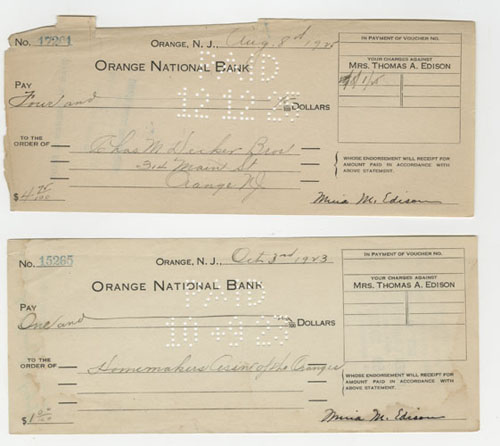 No. 17201 ORANGE, N. J., Aug. 8th 1925
ORANGE NATIONAL BANK
PAID
12·12·25
PAY
Four and DOLLARS
TO THE ORDER OF Chas M. Decker Bros
314 Main St
Orange NJ
$4
IN PAYMENT OF VOUCHER NO.
YOUR CHARGES AGAINST
MRS. THOMAS A. EDISON
WHOSE ENDORSEMENT WILL RECEIPT FOR
AMOUNT PAID IN ACCORDANCE WITH
ABOVE STATEMENT.
Mina M. Edison
No. 15285 ORANGE, N. J., Oct. 3rd 1923
ORANGE NATIONAL BANK
PAID
PAY
One and DOLLARS
TO THE ORDER OF Homemakers Assn of the Oranges
$1
IN PAYMENT OF VOUCHER NO.
YOUR CHARGES AGAINST
MRS. THOMAS A. EDISON
WHOSE ENDORSEMENT WILL RECEIPT FOR
AMOUNT PAID IN ACCORDANCE WITH
ABOVE STATEMENT.
Mina M. Edison